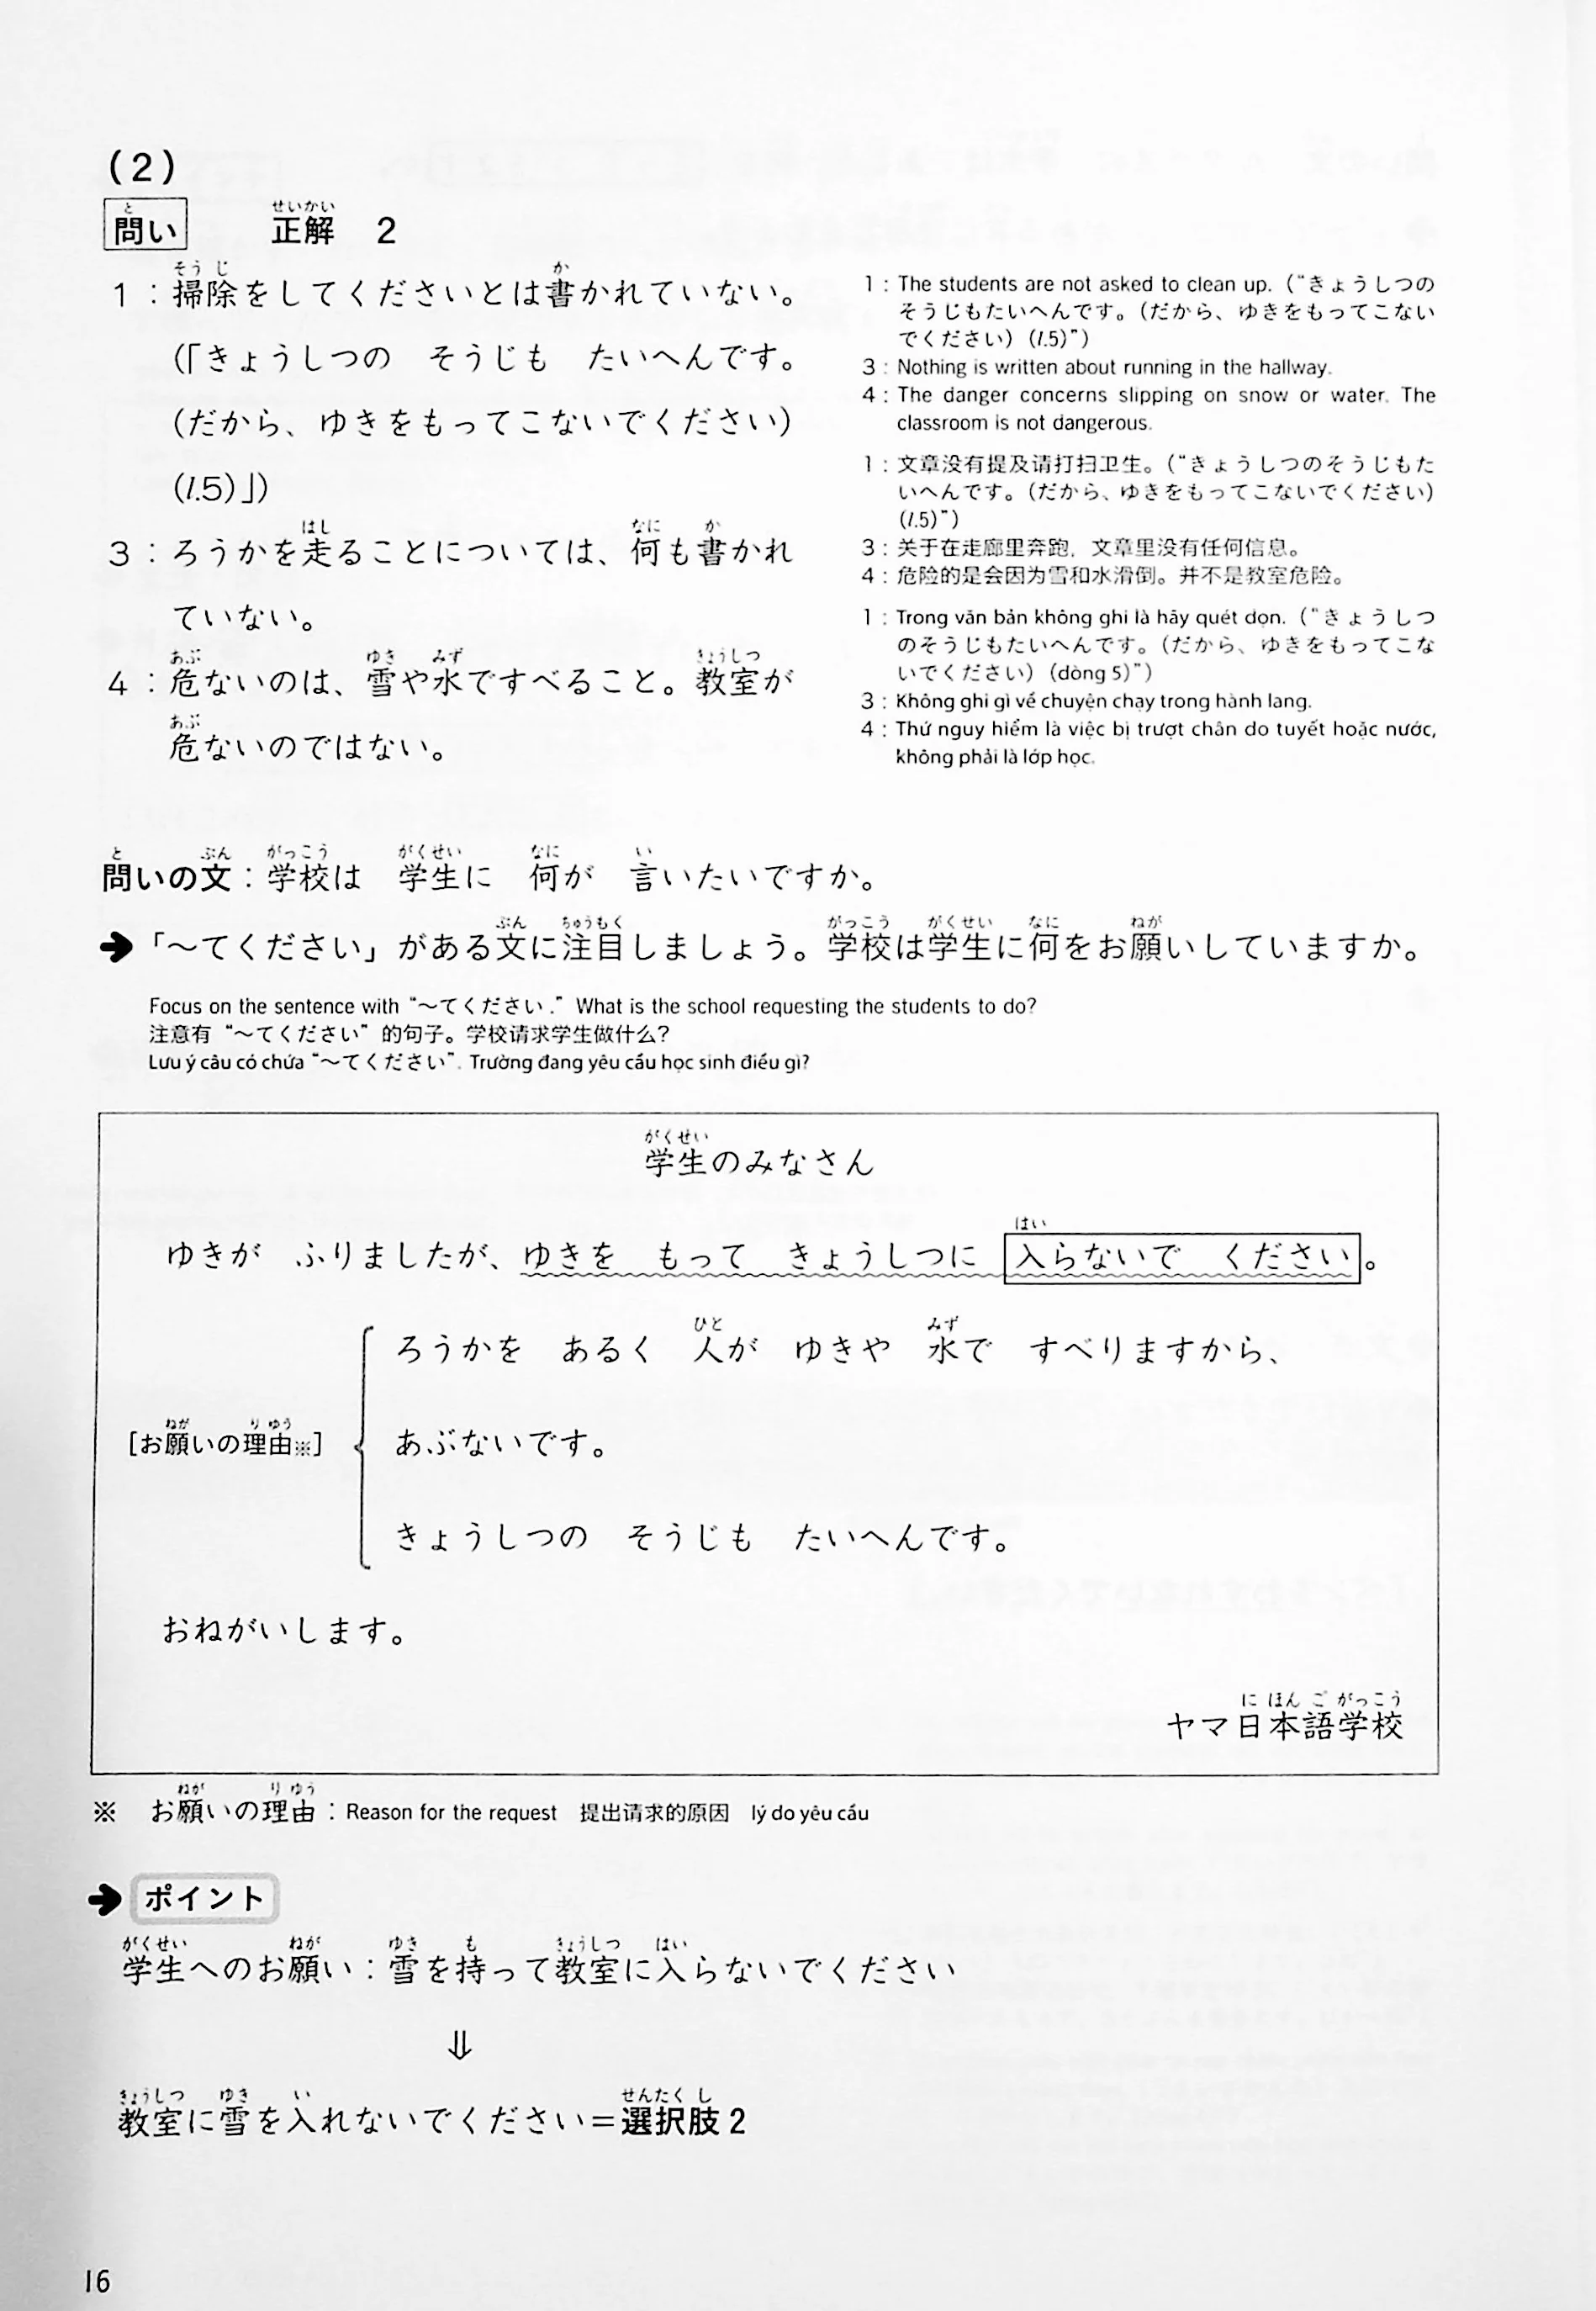 (2)
問い　正解　2
1：掃除をしてくださいとは書かれていない。
(「きょうしつの　そうじも　たいへんです。
(だから、ゆきをもってこないでください)
(l.5)」)
3：ろうかを走ることについては、何も書かれ
ていない。
4：危ないのは、雪や水ですべること。教室が
危ないのではない。
1：The students are not asked to clean up. (“きょうしつの
そうじもたいへんです。(だから、ゆきをもってこない
でください) (l.5)”)
3：Nothing is written about running in the hallway.
4：The danger concerns slipping on snow or water. The
classroom is not dangerous.
1：文章没有提及请打扫卫生。(“きょうしつのそうじもた
いへんです。(だから、ゆきをもってこないでください)
(l.5)”)
3：关于在走廊里奔跑，文章里没有任何信息。
4：危险的是会因为雪和水滑倒。并不是教室危险。
1：Trong văn bản không ghi là hãy quét dọn. (“きょうしつ
のそうじもたいへんです。(だから、ゆきをもってこな
いでください) (dòng 5)”)
3：Không ghi gì về chuyện chạy trong hành lang.
4：Thứ nguy hiểm là việc bị trượt chân do tuyết hoặc nước,
không phải là lớp học.
問いの文：学校は　学生に　何が　言いたいですか。
➔「～てください」がある文に注目しましょう。学校は学生に何をお願いしていますか。
Focus on the sentence with “～てください.” What is the school requesting the students to do?
注意有“～てください”的句子。学校请求学生做什么？
Lưu ý câu có chứa “～てください”. Trường đang yêu cầu học sinh điều gì?
学生のみなさん
ゆきが　ふりましたが、ゆきを　もって　きょうしつに　入らないで　ください。
ろうかを　あるく　人が　ゆきや　水で　すべりますから、
[お願いの理由※]　あぶないです。
きょうしつの　そうじも　たいへんです。
おねがいします。
ヤマ日本語学校
※　お願いの理由：Reason for the request　提出请求的原因　lý do yêu cầu
➔ ポイント
学生へのお願い：雪を持って教室に入らないでください
⇓
教室に雪を入れないでください＝選択肢2
16